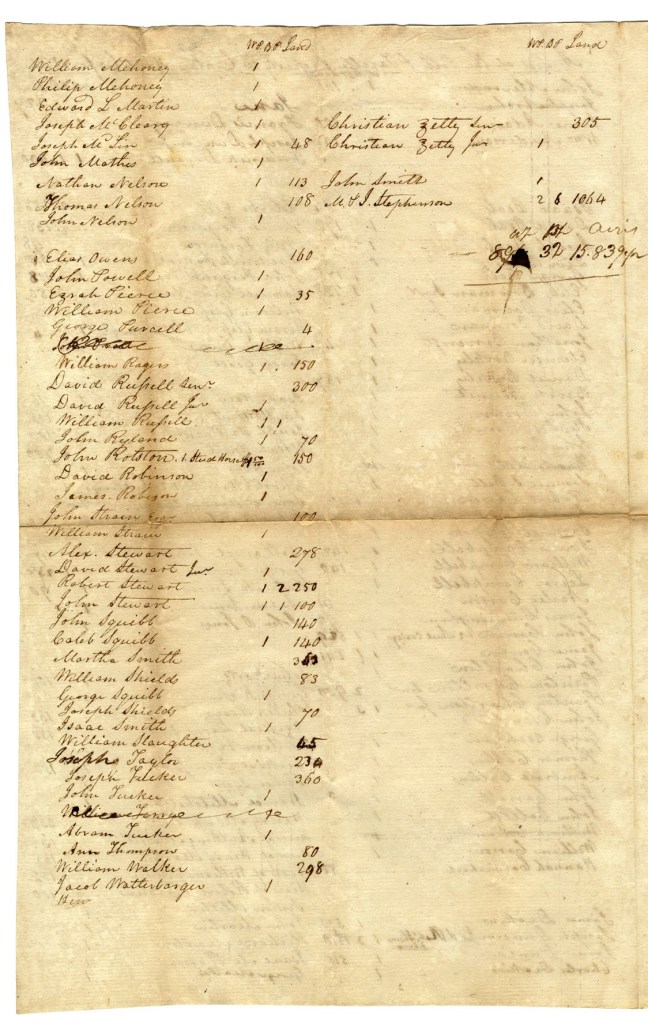 W P. B P. Land
William Mehoney 1
Philip Mehoney 1
Edward L Martin 1
Joseph McCleary 1
Joseph McLin 1 48
John Mathes 1
Nathan Nelson 1 113
Thomas Nelson 108
John Nelson 1
Elias Owens 160
John Powell 1
Ezrah Pierce 1 35
William Pierce 1
George Purcell 4
William Rogers 1. 150
David Russell Senr. 300
David Russell Jur 1
William Russell 1 1
John Ryland 1 70
John Rolston. 1. Stud Horse 150
David Robinson 1
James. Robison 1
John Strain Esqr. 100
William Strain 1
Alex. Stewart 278
David Stewart Junr. 1
Robert Stewart 1 2 250
John Stewart 1 1 100
John Squibb 140
Caleb Squibb 1 140
Martha Smith
William Shields 83
George Squibb 1
Joseph Shields 70
Isaac Smith 1
William Slaughter 45
Joseph Taylor 234
Joseph Tucker 360
John Tucker 1
Abram Tucker 1
Ann Thompson 80
William Walker 298
Jacob Watterbarger 1
W P. B P Land
Christian Zetty Senr 305
Christian Zetty Jur 1
John Smith 1
M. & J. Stephenson 2 8 1064
WP BP Acris
32 15.839